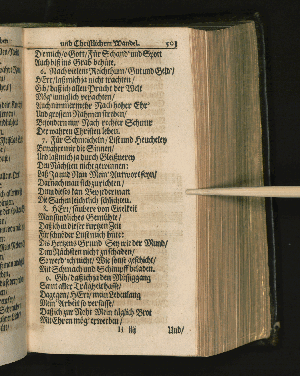 und Christlichen Wandel. 503
De mich/ o Gott/ Für Schand' und Spott
Auch biß ins Grab behüte.
6. Nach vielem Reichthum/ Gut und Geld/
HErr/ laß mich ja nicht trachten/
Gib/ daß ich allen Pracht der Welt
Mög' inniglich verachten/
Auch nimmermehr Nach hoher Ehr'
Und grossem Nahmen streben/
Besondern nur Nach rechter Schnur
Der wahren Christen leben.
7. Für Schmeicheln/ List und Heucheley
Bewahre mir die Sinnen/
Und laß mich ja durch Gleißnerey
Den Nächsten nicht gewinnen:
Laß Ja und Nein Mein' Antwort seyn/
Darnach man sich zu richten/
Denn dieses kan Bey jederman
Die Sachen leichtlich schlichten.
8. HErr/ säubere von Eitelkeit
Mein sündliches Gemühte/
Daß ich in dieser kurtzen Zeit
Für schnöder Lust mich hüte:
Des Hertzens Grund Sey wie der Mund/
Den Nächsten nicht zu schaden/
So werd' ich nicht/ Wie sonst geschicht/
Mit Schmach und Schimpff beladen.
9. Gib/ daß ich ja den Müssiggang
Samt aller Trägheit hasse/
Dagegen/ HErr/ mein Lebenlang
Mein' Arbeit so verfasse/
Daß ich zur Noht Mein täglich Brot
Mit Ehren mög' erwerben/
Und/